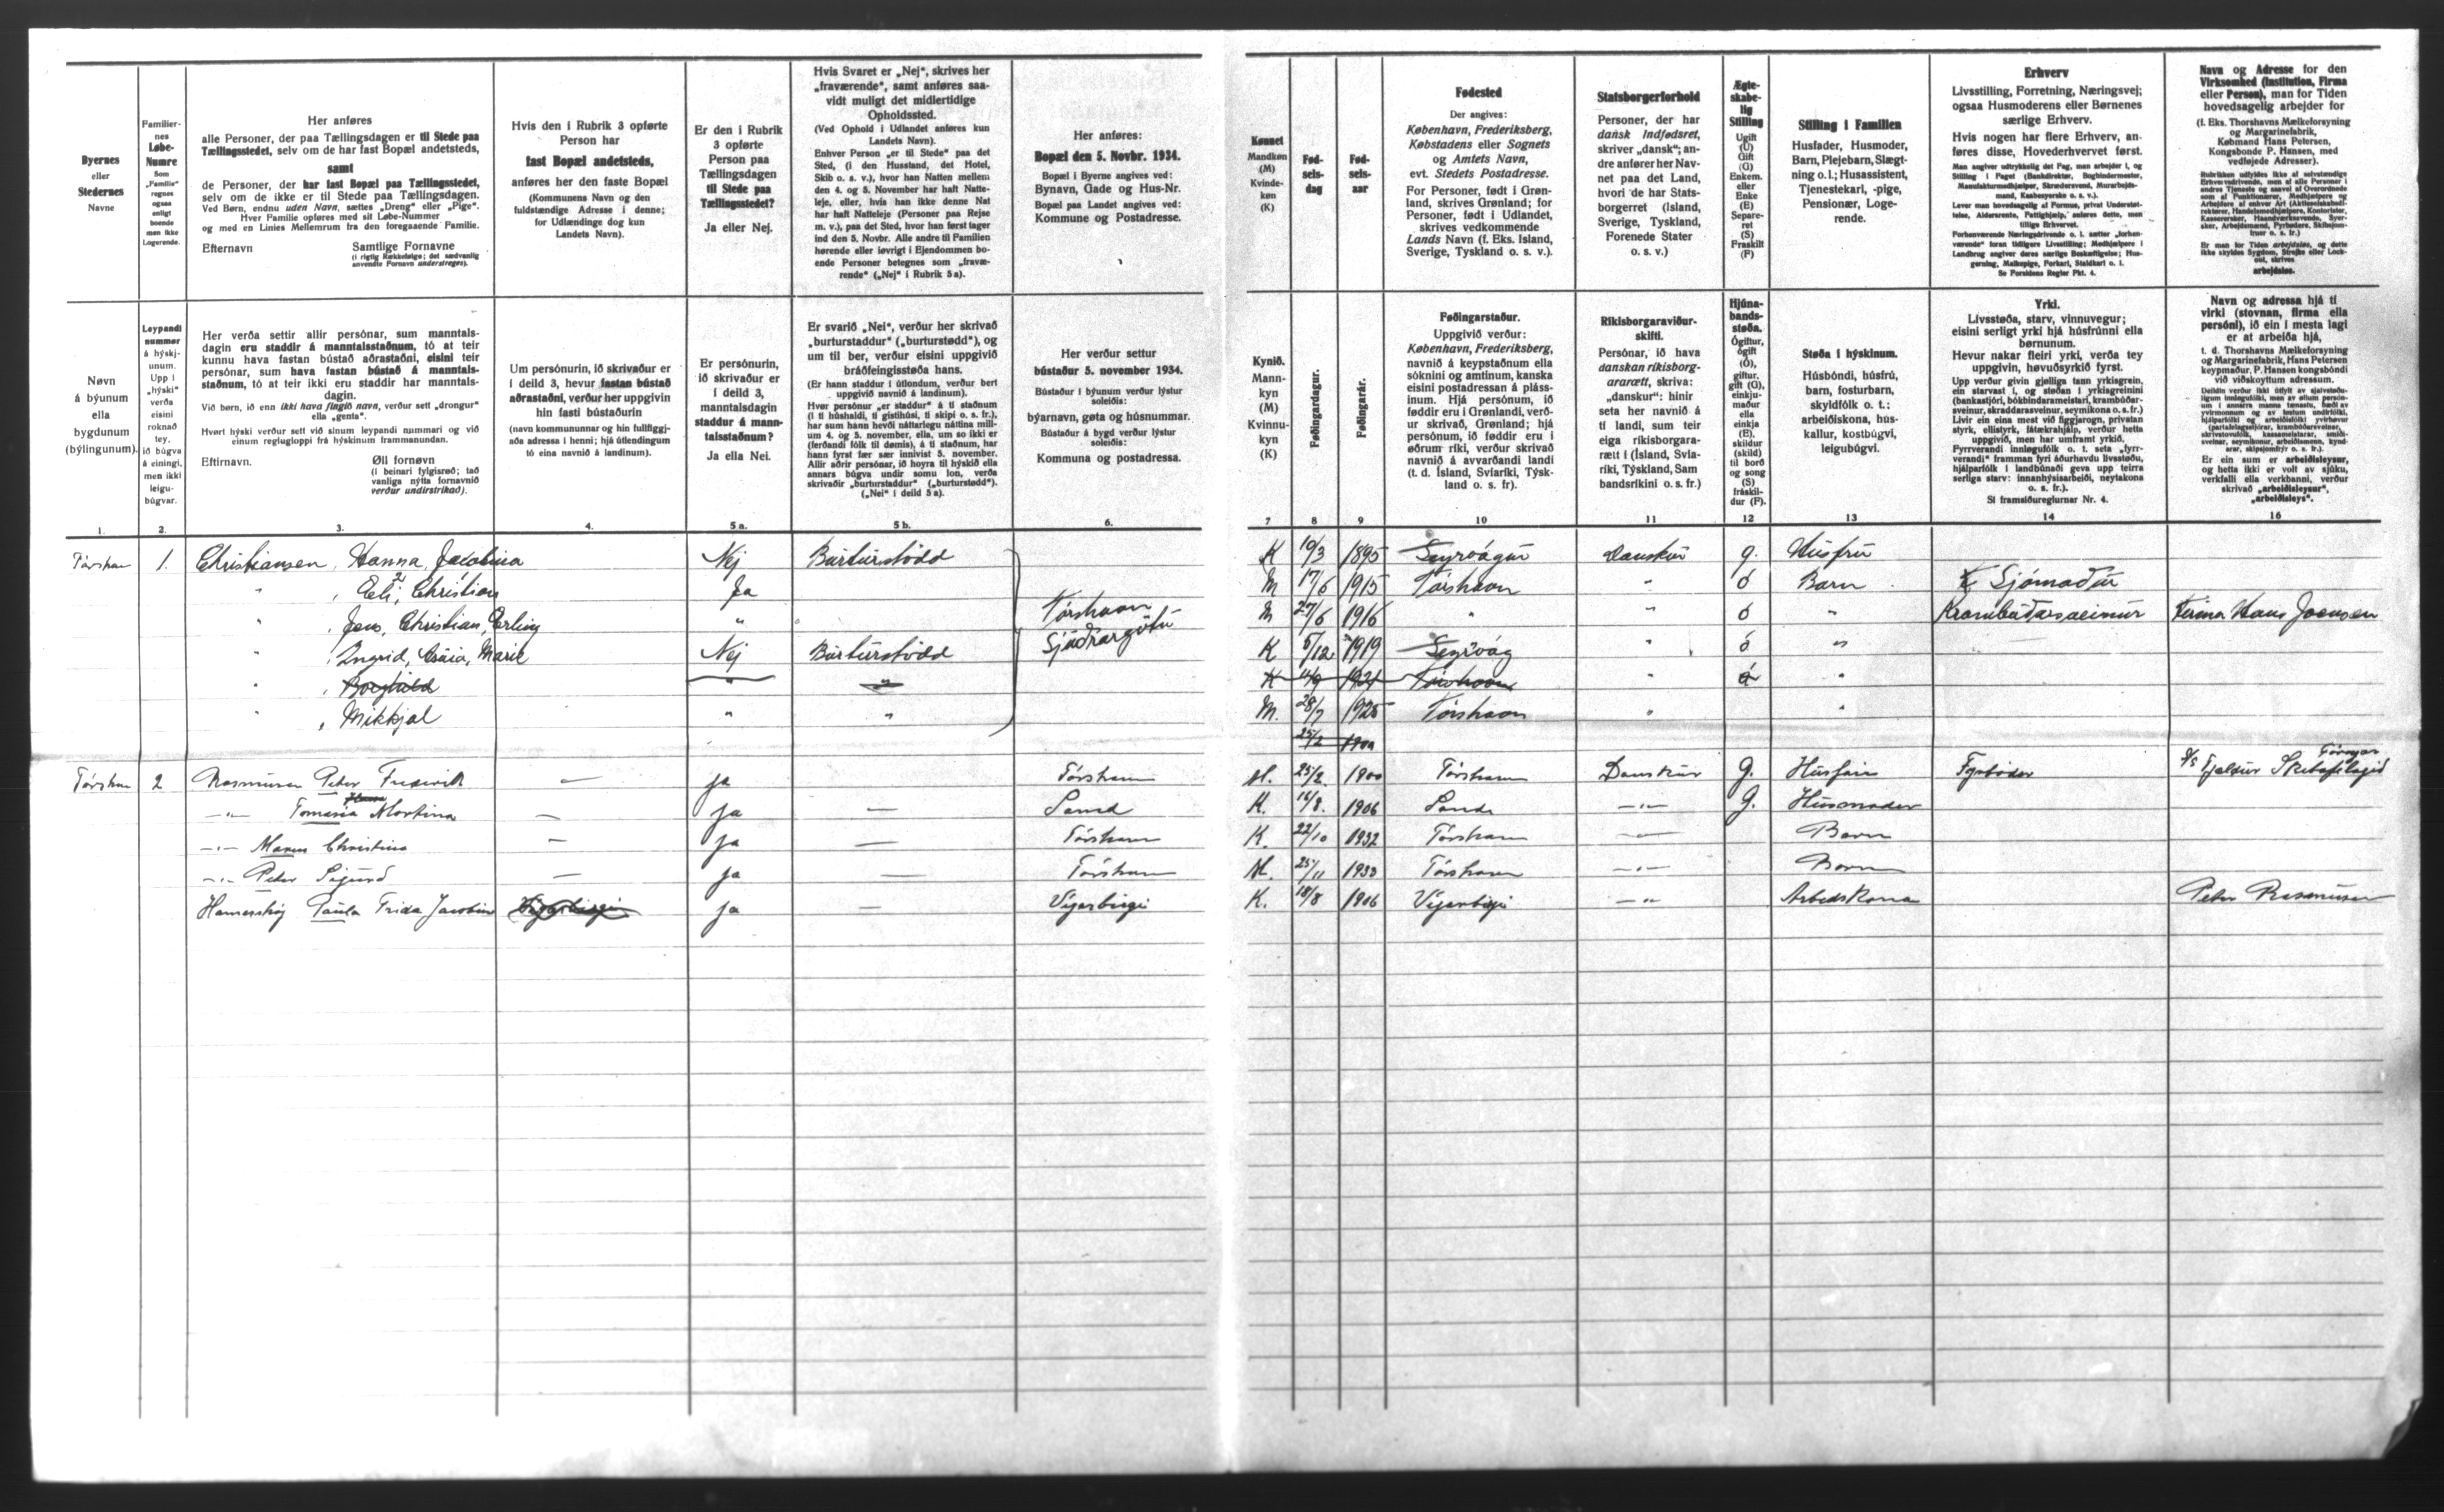 Byernes eller Stedernes Navne
Familiernes Løbe-Numre Som „Familie“ regnes ogsaa enligt boende men ikke Logerende.
Her anføres
alle Personer, der paa Tællingsdagen er til Stede paa
Tællingsstedet, selv om de har fast Bopæl andetsteds,
samt
de Personer, der har fast Bopæl paa Tællingsstedet,
selv om de ikke er til Stede paa Tællingsdagen.
Ved Børn, endnu uden Navn, sættes „Dreng“ eller „Pige“.
Hver Familie opføres med sit Løbe-Nummer
og med en Linies Mellemrum fra den foregaaende Familie.
Efternavn
Samtlige Fornavne
(i rigtig Rækkefølge; det sædvanlig
anvendte Fornavn understreges).
Hvis den i Rubrik 3 opførte
Person har
fast Bopæl andetsteds,
anføres her den faste Bopæl
(Kommunens Navn og den
fuldstændige Adresse i denne;
for Udlændinge dog kun
Landets Navn).
Er den i Rubrik
3 opførte
Person paa
Tællingsdagen
til Stede paa
Tællingsstedet?
Ja eller Nej.
Hvis Svaret er „Nej“, skrives her
„fraværende“, samt anføres saa-
vidt muligt det midlertidige
Opholdssted.
(Ved Ophold i Udlandet anføres kun
Landets Navn).
Enhver Person „er til Stede“ paa det
Sted, (i den Husstand, det Hotel,
Skib o. s. v.), hvor han Natten mellem
den 4. og 5. November har haft Natte-
leje, eller, hvis han ikke denne Nat
har haft Natteleje (Personer paa Rejse
m. v.), paa det Sted, hvor han først tager
ind den 5. Novbr. Alle andre til Familien
hørende eller iøvrigt i Ejendommen bo-
ende Personer betegnes som „fravæ-
rende“ („Nej“ i Rubrik 5 a).
Her anføres:
Bopæl den 5. Novbr. 1934.
Bopæl i Byerne angives ved:
Bynavn, Gade og Hus-Nr.
Bopæl paa Landet angives ved:
Kommune og Postadresse.
Kønnet
Mandkøn
(M)
Kvinde-
køn
(K)
Fød-
sels-
dag
Fød-
sels-
aar
Fødested
Der angives:
København, Frederiksberg,
Købstadens eller Sognets
og Amtets Navn,
evt. Stedets Postadresse.
For Personer, født i Grøn-
land, skrives Grønland; for
Personer, født i Udlandet,
skrives vedkommende
Lands Navn (f. Eks. Island,
Sverige, Tyskland o. s. v.).
Statsborgerforhold
Personer, der har
dansk Indfødsret,
skriver „dansk“; an-
dre anfører her Nav-
net paa det Land,
hvori de har Stats-
borgerret (Island,
Sverige, Tyskland,
Forenede Stater
o. s. v.)
Ægte-
skabe-
lig
Stilling
Ugift
(U)
Gift
(G)
Enkem.
eller
Enke
(E)
Separe-
ret
(S)
Fraskilt
(F)
Stilling i Familien
Husfader, Husmoder,
Barn, Plejebarn, Slægt-
ning o. l.; Husassistent,
Tjenestekarl, -pige,
Pensionær, Loge-
rende.
Erhverv
Livsstilling, Forretning, Næringsvej;
ogsaa Husmoderens eller Børnenes
særlige Erhverv.
Hvis nogen har flere Erhverv, an-
føres disse, Hovederhvervet først.
Man angiver udtrykkelig det Fag, man arbejder i, og
Stilling i Faget (Bankdirektør, Bogbindermester,
Manufakturmedhjælper, Skrædersvend, Murarbejds-
mand, Kasbesyerske o. s. v.).
Lever man hovedsagelig af Formue, privat Understøt-
telse, Aldersrente, Fattighjælp, anføres dette, men
tillige Erhvervet.
Se Forsidens Regler Pkt. 4.
Navn og Adresse for den
Virksomhed (Institution, Firma
eller Person), man for Tiden
hovedsagelig arbejder for
(f. Eks. Thorshavns Mælkeforsyning
og Margarinefabrik,
Købmand Hans Petersen,
Kongsbonde P. Hansen, med
vedføjede Adresser).
Er man for Tiden arbejdsløs, og dette
ikke skyldes Sygdom, Strejke eller Lock-
out, skrives
arbejdsløs.
Nøvn
á býunum
ella
bygdunum
(býlingunum).
Leypandi
nummer
á hýskj-
unum.
Upp í
„hýski“
verða
eisini
roknað
tey,
ið búgva
á einingi,
men ikki
leigu-
búgvar.
Her verða settir allir persónar, sum manntals-
dagin eru staddir á manntalsstaðnum, tó at teir
kunnu hava fastan bústað aðrastaðni, eisini teir
persónar, sum hava fastan bústað á manntals-
staðnum, tó at teir ikki eru staddir har manntals-
dagin.
Við børn, ið enn ikki hava fingið navn, verður sett „drongur“
ella „genta“.
Hvørt hýski verður sett við sínum leypandi nummari og við
einum regluglopp​i frá hýskinum frammanundan.
Eftirnavn.
Øll fornøvn
(í beinari fylgisrøð; tað
vanliga nýtta fornavnið
verður undirstrikað).
Um persónurin, ið skrivaður er
í deild 3, hevur fastan bústað
aðrastaðni, verður her uppgivin
hin fasti bústaðurin
(navn kommununnar og hin fullfiggj-
aða adressa í henni; hjá útlendingum
tó eina navnið á landinum).
Er persónurin,
ið skrivaður er
í deild 3,
manntalsdagin
staddur á mann-
talsstaðnum?
Ja ella Nei.
Er svarið „Nei“, verður her skrivað
„burturstaddur“ („burturstødd“), og
um til ber, verður eisini uppgivið
bráðfeingisstøða hans.
(Er hann staddur í útlondum, verður bert
uppgivið navnið á landinum).
Hvør persónur „er staddur“ á tí staðnum
(í tí húshaldi, tí gistihúsi, tí skipi o. s. fr.),
har sum hann hevði náttarlegu náttina mill-
um 4. og 5. november, ella, um so ikki er
(ferðandi fólk til dømis), á tí staðnum, har
hann fyrst fær sær innivist 5. november.
Allir aðrir persónar, ið hoyra til hýskið ella
annars búgva undir somu lon, verða
skrivaðir „burturstaddur“ („burturstødd“).
(„Nei“ í deild 5 a).
Her verður settur
bústaður 5. november 1934.
Bústaður í býunum verður lýstur
soleiðis:
býarnavn, gøta og húsnummar.
Bústaður á bygd verður lýstur
soleiðis:
Kommuna og postadressa.
Kynið.
Mann-
kyn
(M)
Kvinnu-
kyn
(K)
Føðingardagur.
Føðingarár.
Føðingarstaður.
Uppgivið verður:
København, Frederiksberg,
navnið á keypstaðnum ella
sóknini og amtinum, kanska
eisini postadressan á pláss-
inum. Hjá persónum, ið
føddir eru í Grønlandi, verð-
ur skrivað, Grønland; hjá
persónum, ið føddir eru í
øðrum ríki, verður skrivað
navnið á avvarðandi landi
(t. d. Ísland, Svíaríki, Týsk-
land o. s. fr).
Ríkisborgaraviður-
skifti.
Persónar, ið hava
danskan ríkisborg-
ararætt, skriva:
„danskur“: hinir
seta her navnið á
tí landi, sum teir
eiga ríkisborgara-
rætt í (Ísland, Svía-
ríki, Týskland, Sam
bandsríkini o. s. fr.)
Hjúna-
bands-
støða.
Ógiftur,
ógift
(Ó),
giftur,
gift (G),
einkju-
maður
ella
einkja
(E),
skildur
(skild)
til borð
og song
(S)
fráskil-
dur (F).
Støða í hýskinum.
Húsbóndi, húsfrú,
barn, fosturbarn,
skyldfólk o. t.;
arbeiðiskona, hús-
kallur, kostbúgvi,
leigubúgvi.
Yrki.
Livsstøða, starv, vinnuvegur;
eisini serligt yrki hjá húsfrúnni ella
børnunum.
Hevur nakar fleiri yrki, verða tey
uppgivin, høvuðsyrkið fyrst.
Sí framsíðureglurnar Nr. 4.
Navn og adressa hjá tí
virki (stovnan, firma ella
persóni), ið ein í mesta lagi
er at arbeiða hjá,
t. d. Thorshavns Mælkeforsyning
og Margarinefabrik, Hans Petersen
keypmaður, P. Hansen kongsbóndi
við viðskoyttum adressum.
Er ein sum er arbeiðisleysur,
og hetta ikki er volt av sjúku,
verkfalli ella verkbanni, verður
skrivað „arbeiðisleysur“,
„arbeiðisleys“.
1. 2. 3. 4. 5 a. 5 b. 6. 7 8 9 10 11 12 13 14 16
Tórshavn 1. Christiansen, Hanna, Jacobina Nej Burturstödd K 10/3 1895 Danskur g. Húsfrú
" , Eli, Christian Ja M 17/6 1915 Tórshavn " ó Barn Sjómaður
" , Jens, Christian, Erling " Tórshavn M 27/6 1916 " " ó " Firma Hans Joensen
" , Ingrid, Marie Nej Burturstödd K 5/12 1919 " ó "
" " " K 1921 Tórshavn ó "
" , Mikkjal " " M. 28/7 1925 Tórshavn " "
25/2 1900
Tórshavn 2 Rasmussen Peter Frederik — ja Tórshavn M. 25/2. 1900 Tórshavn Danskur g. Fyrbøder
—"— Martina — ja — Sand K. 16/8. 1906 —"— g. Húsmoder
—"— Maren Christina — ja — Tórshavn K. 22/10 1932 Tórshavn —"— Barn
—"— Peter Sigurd — ja — Tórshavn M. 25/11 1933 Tórshavn —"— Barn
Paula Frida ja — K. 18/8 1906 —"— Peter Rasmussen